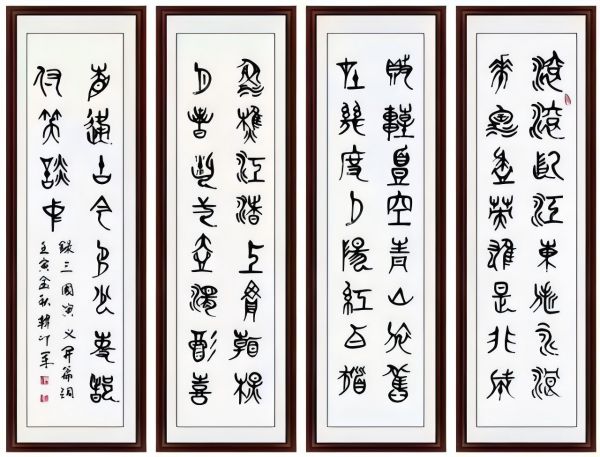 滾滾長江東逝水浪
花淘盡英雄是非成
敗轉頭空青山依舊
在幾度夕陽紅白髮
漁樵江渚上慣看秋
月春風一壺濁酒喜
相逢古今多少事都
付笑談中
錄三國演义開篇詞
壬寅金秋韓